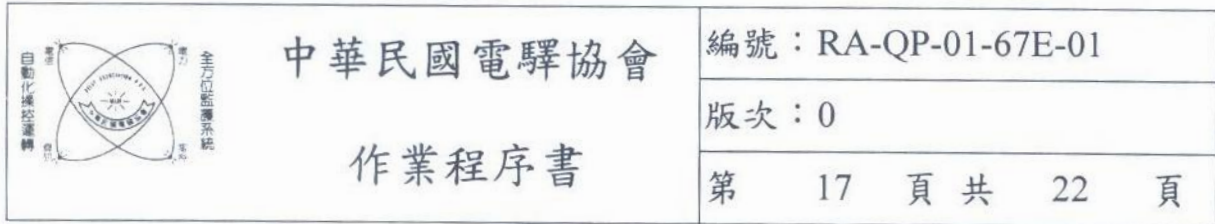 自動化操控運轉
全方位監護系統
電力
中華民國電驛協會
作業程序書
編號：RA-QP-01-67E-01
版次：0
第 17 頁 共 22 頁